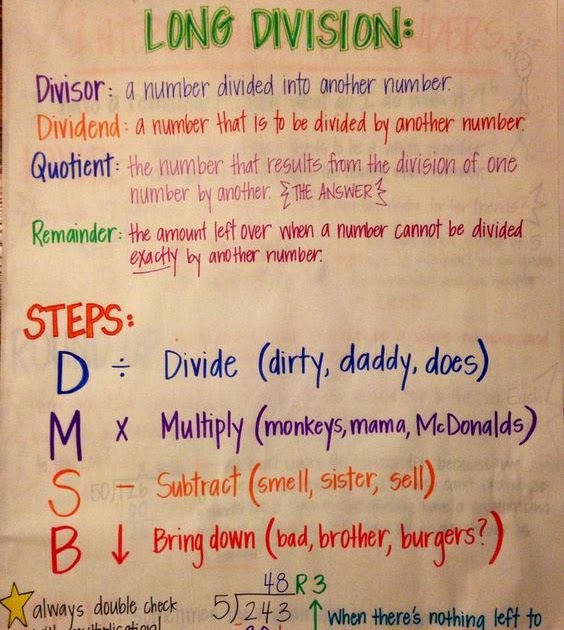 LONG DIVISION:
Divisor: a number divided into another number.
Dividend: a number that is to be divided by another number.
Quotient: the number that results from the division of one
number by another. {THE ANSWER}
Remainder: the amount left over when a number cannot be divided
exactly by another number.
STEPS:
D ÷ Divide (dirty, daddy, does)
M x Multiply (monkeys, mama, McDonalds)
S - Subtract (smell, sister, sell)
B ↓ Bring down (bad, brother, burgers?)
48 R 3
always double check 5)243 ↑ when there's nothing left to
with multiplication!